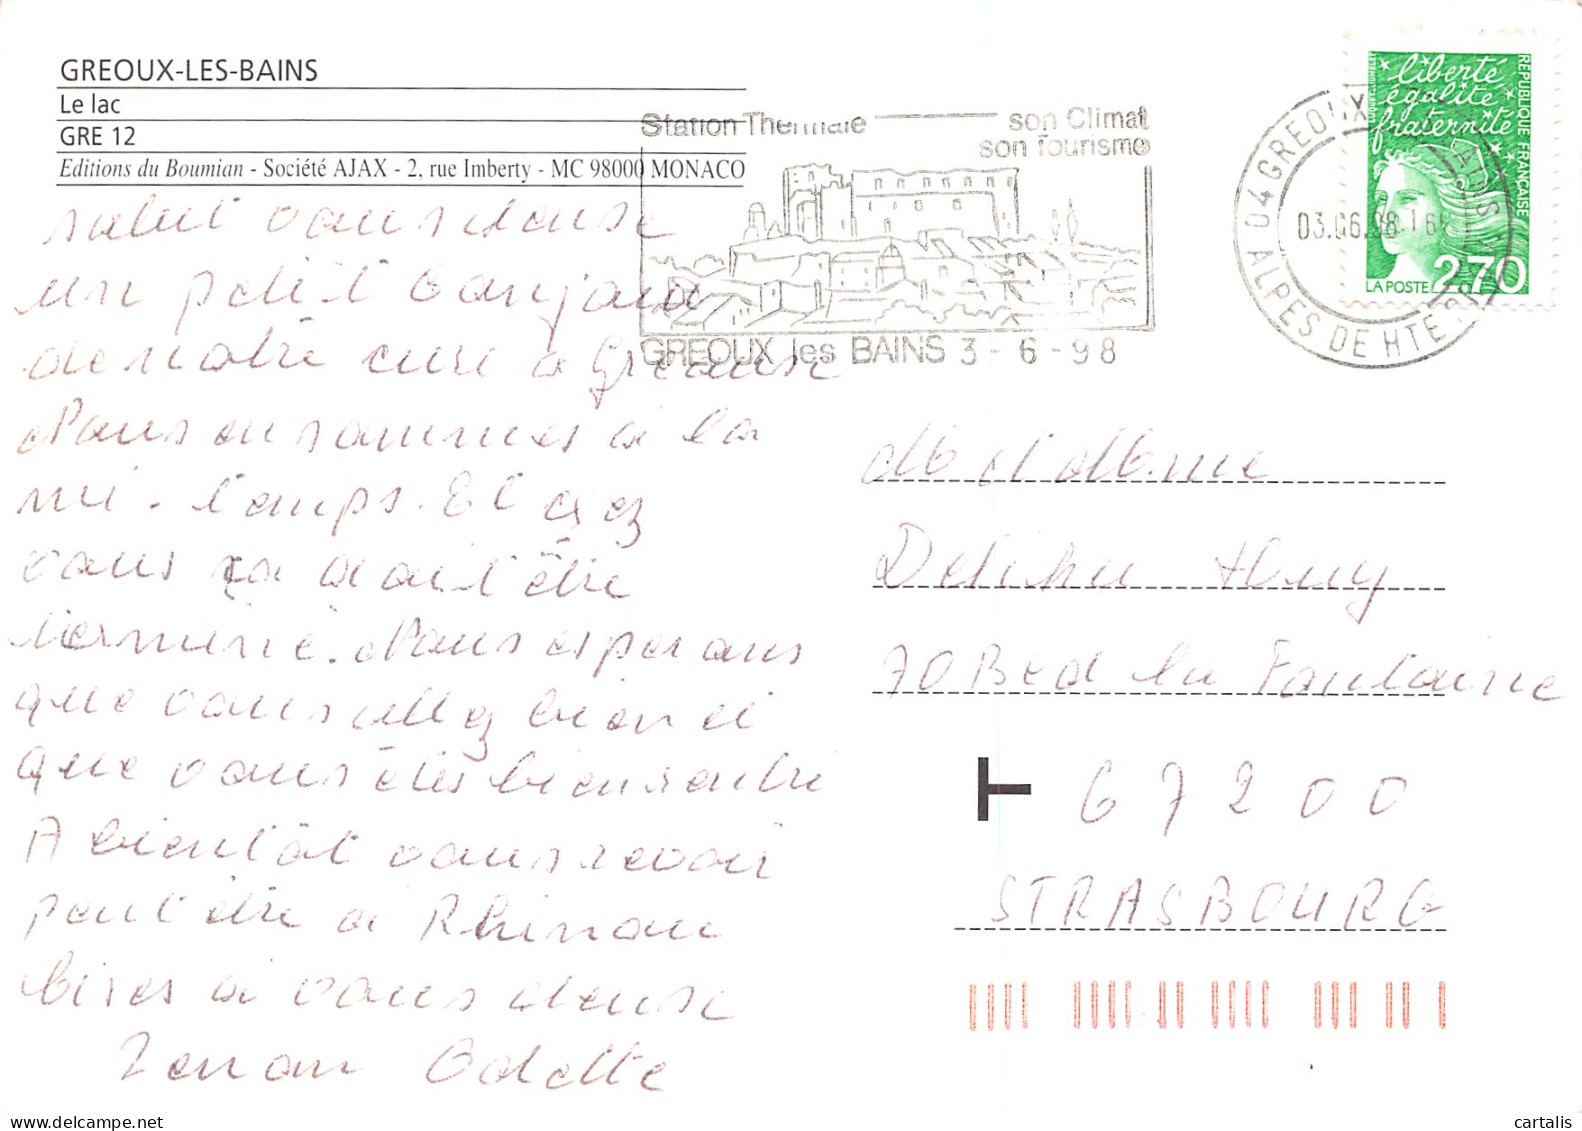 GREOUX-LES-BAINS
Le lac
GRE 12
Editions du Boumian - Société AJAX - 2, rue Imberty - MC 98000 MONACO
Station Thermale son Climat
son Tourisme
GREOUX les BAINS 3 - 6 - 98
04 GREOUX
ALPES DE HTE
03.06.98 16
liberté
égalité
fraternité
REPUBLIQUE FRANÇAISE
LA POSTE 2,70
salut vous deuse
un petit bonjour
de notre cure a Greouse
Nous en sommes a la
mi-temps. Et chez
vous ça doit être
terminé. Nous esperons
que vous allez bien et
que vous êtes bien rentre
A bientôt vous revoir
peut être a Rhinau
bises a vous deuse
Odette
M et Mme
70 Bld la Fontaine
67200
STRASBOURG
cartalis.com